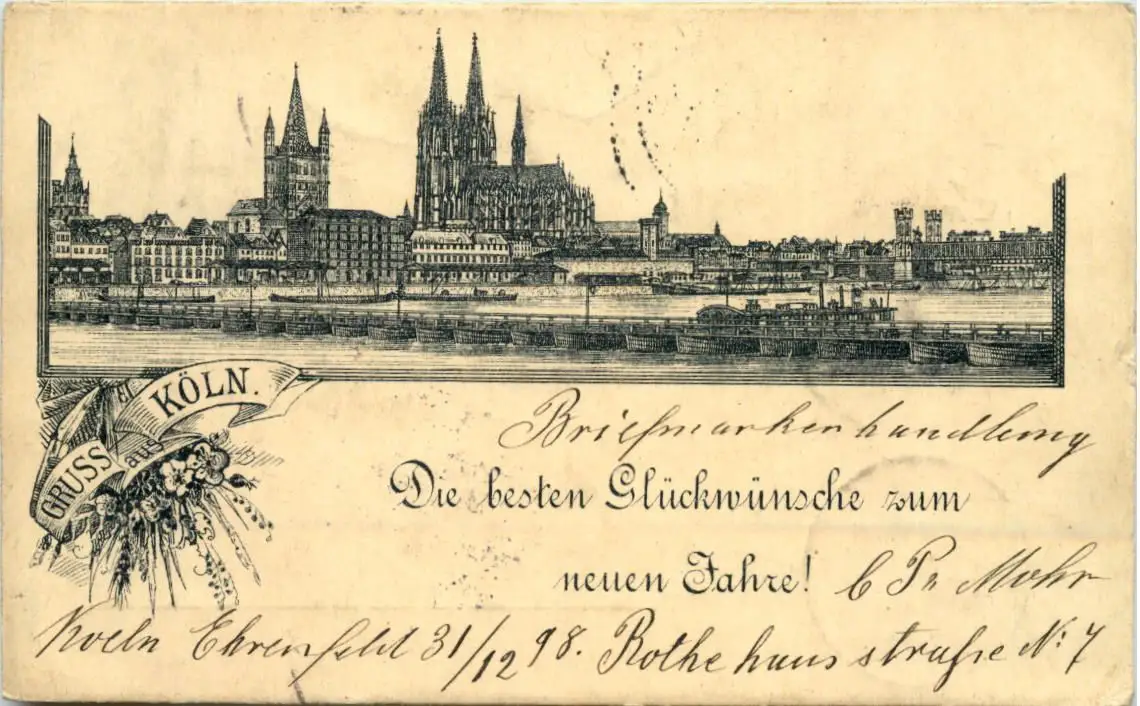 GRUSS aus KÖLN.
Briefmarkenhandlung
Die besten Glückwünsche zum
neuen Jahre!
C Pr Mohr
Koeln Ehrenfeld 31/12 98. Rothehausstraße N: 7